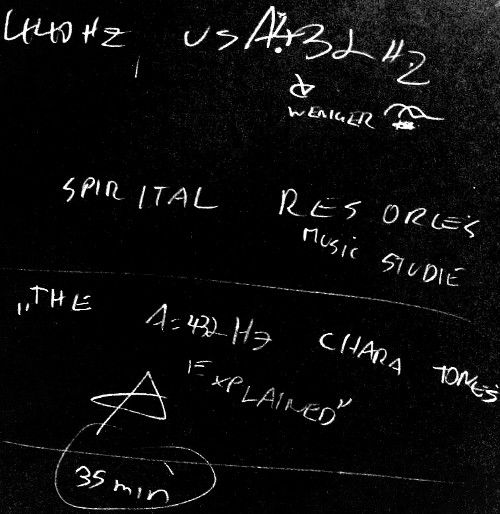 440 HZ US A432 HZ
WENIGER
SPIRITAL RESORCES
MUSIC STUDIE
„THE A=432 HZ CHARA TONES
EXPLAINED”
A
35 min